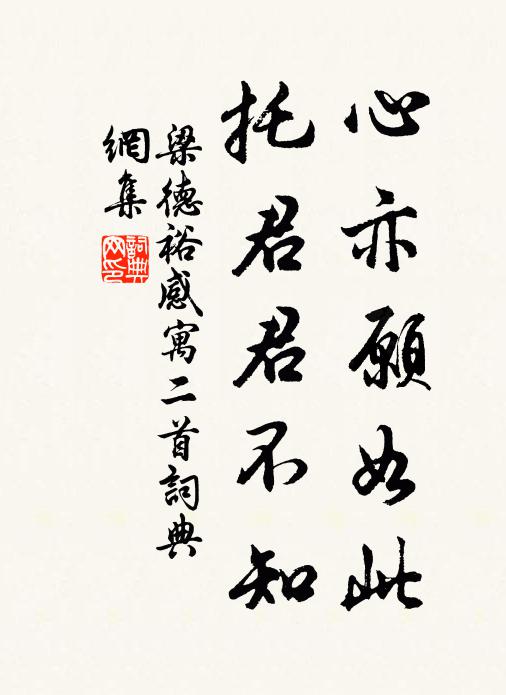 心亦願如此
托君君不知
梁德裕感寓二首詞典
網集
詞典网印